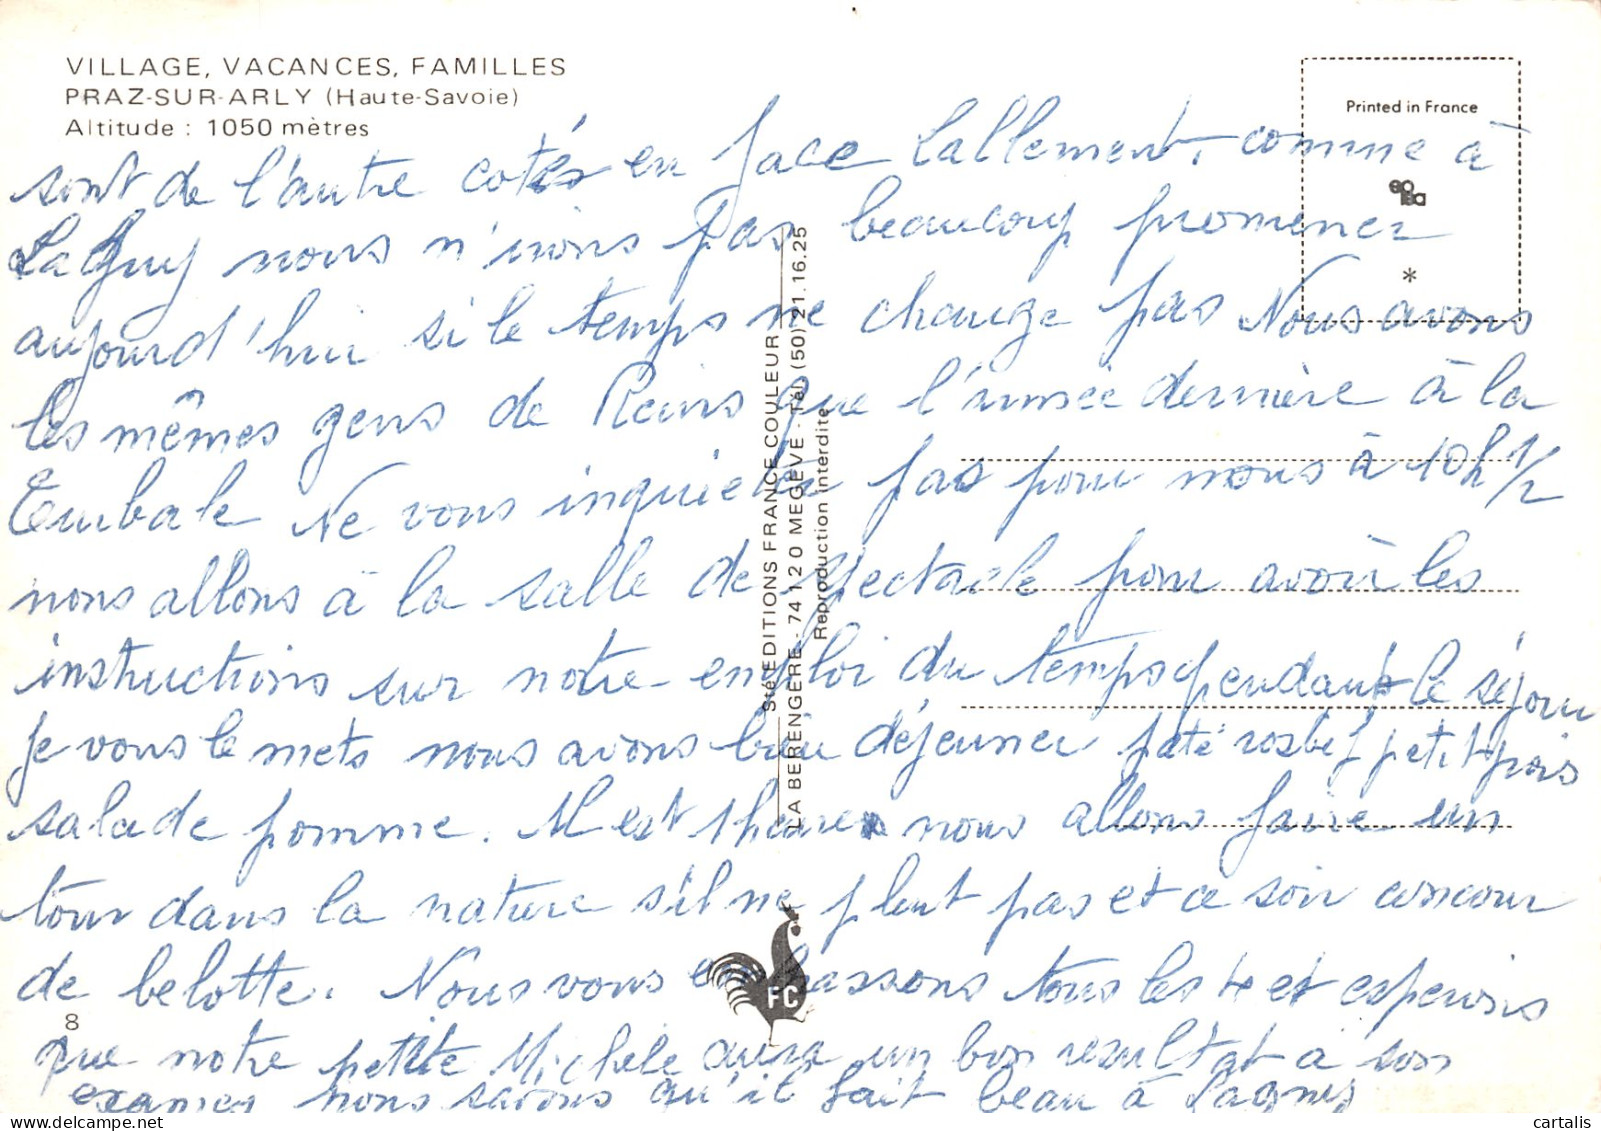 VILLAGE, VACANCES, FAMILLES
PRAZ-SUR-ARLY (Haute-Savoie)
Altitude : 1050 mètres
Printed in France
*
sont de l'autre cotés en face lallement, comme à
Lagny nous n'irons pas beaucoup promener
aujourd'hui si le temps ne change pas Nous avons
les mêmes gens de Reims que l'année dernière à la
Ne vous inquieté pas pour nous à 10h 1/2
nous allons à la salle de spectacle pour avoir les
instructions sur notre emploi du temps pendant le séjour
Je vous le mets nous avons bien déjeuner paté rosbif petit pois
salade pomme. Il est 1 heure nous allons faire un
tour dans la nature s'il ne pleut pas et ce soir concour
de belotte. Nous vous embrassons tous les 4 et esperons
que notre petite Michèle aura un bon resultat à son
examen nous savons qu'il fait beau à Lagny
8
Sté EDITIONS FRANCE COULEUR
LA BERENGÈRE - 74120 MEGÈVE - Tél. (50) 21.16.25
Reproduction interdite
FC
www.delcampe.net
cartalis